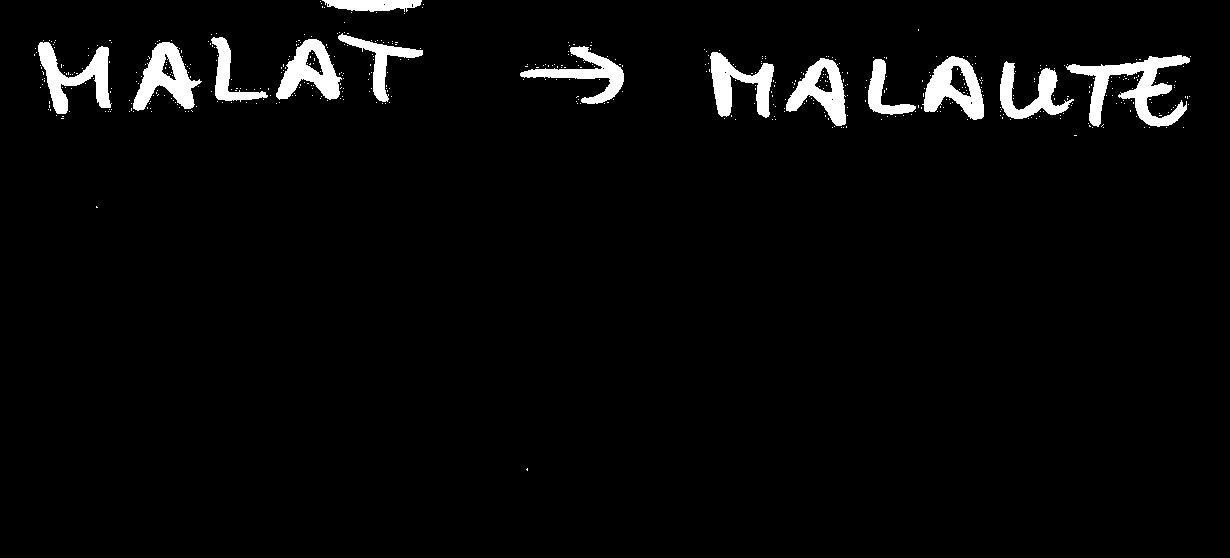 MALAT → MALAUTE